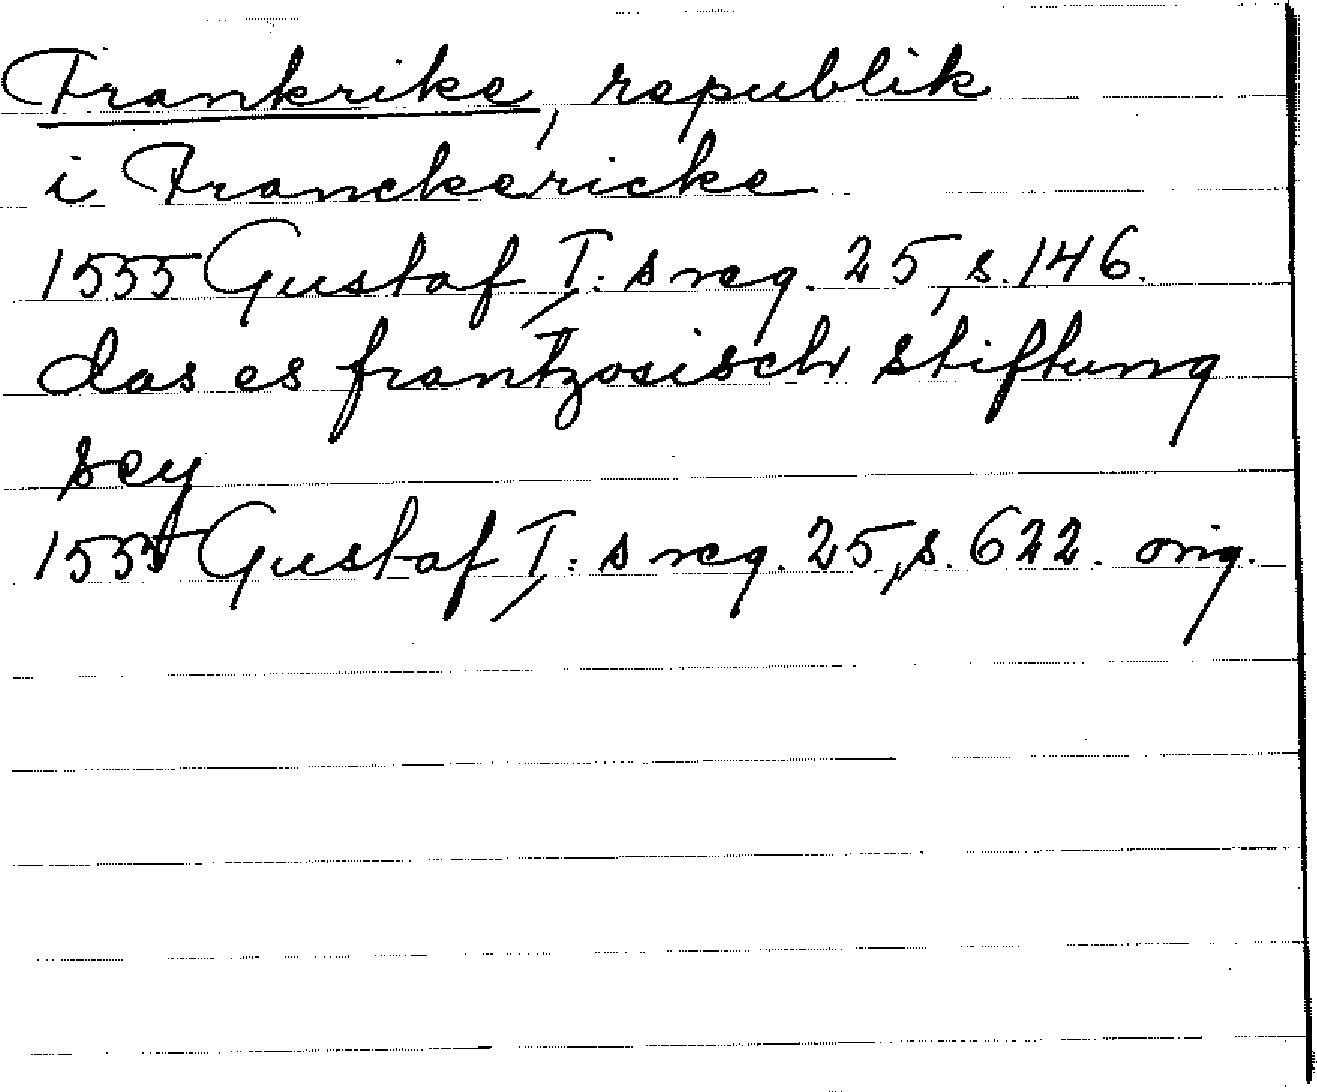 Frankrike, republik
i Franckericke
1555 Gustaf I: s reg. 25, s. 146.
das es frantzosisch stiftung
sey
1555 Gustaf I: s reg. 25, s. 622. orig.